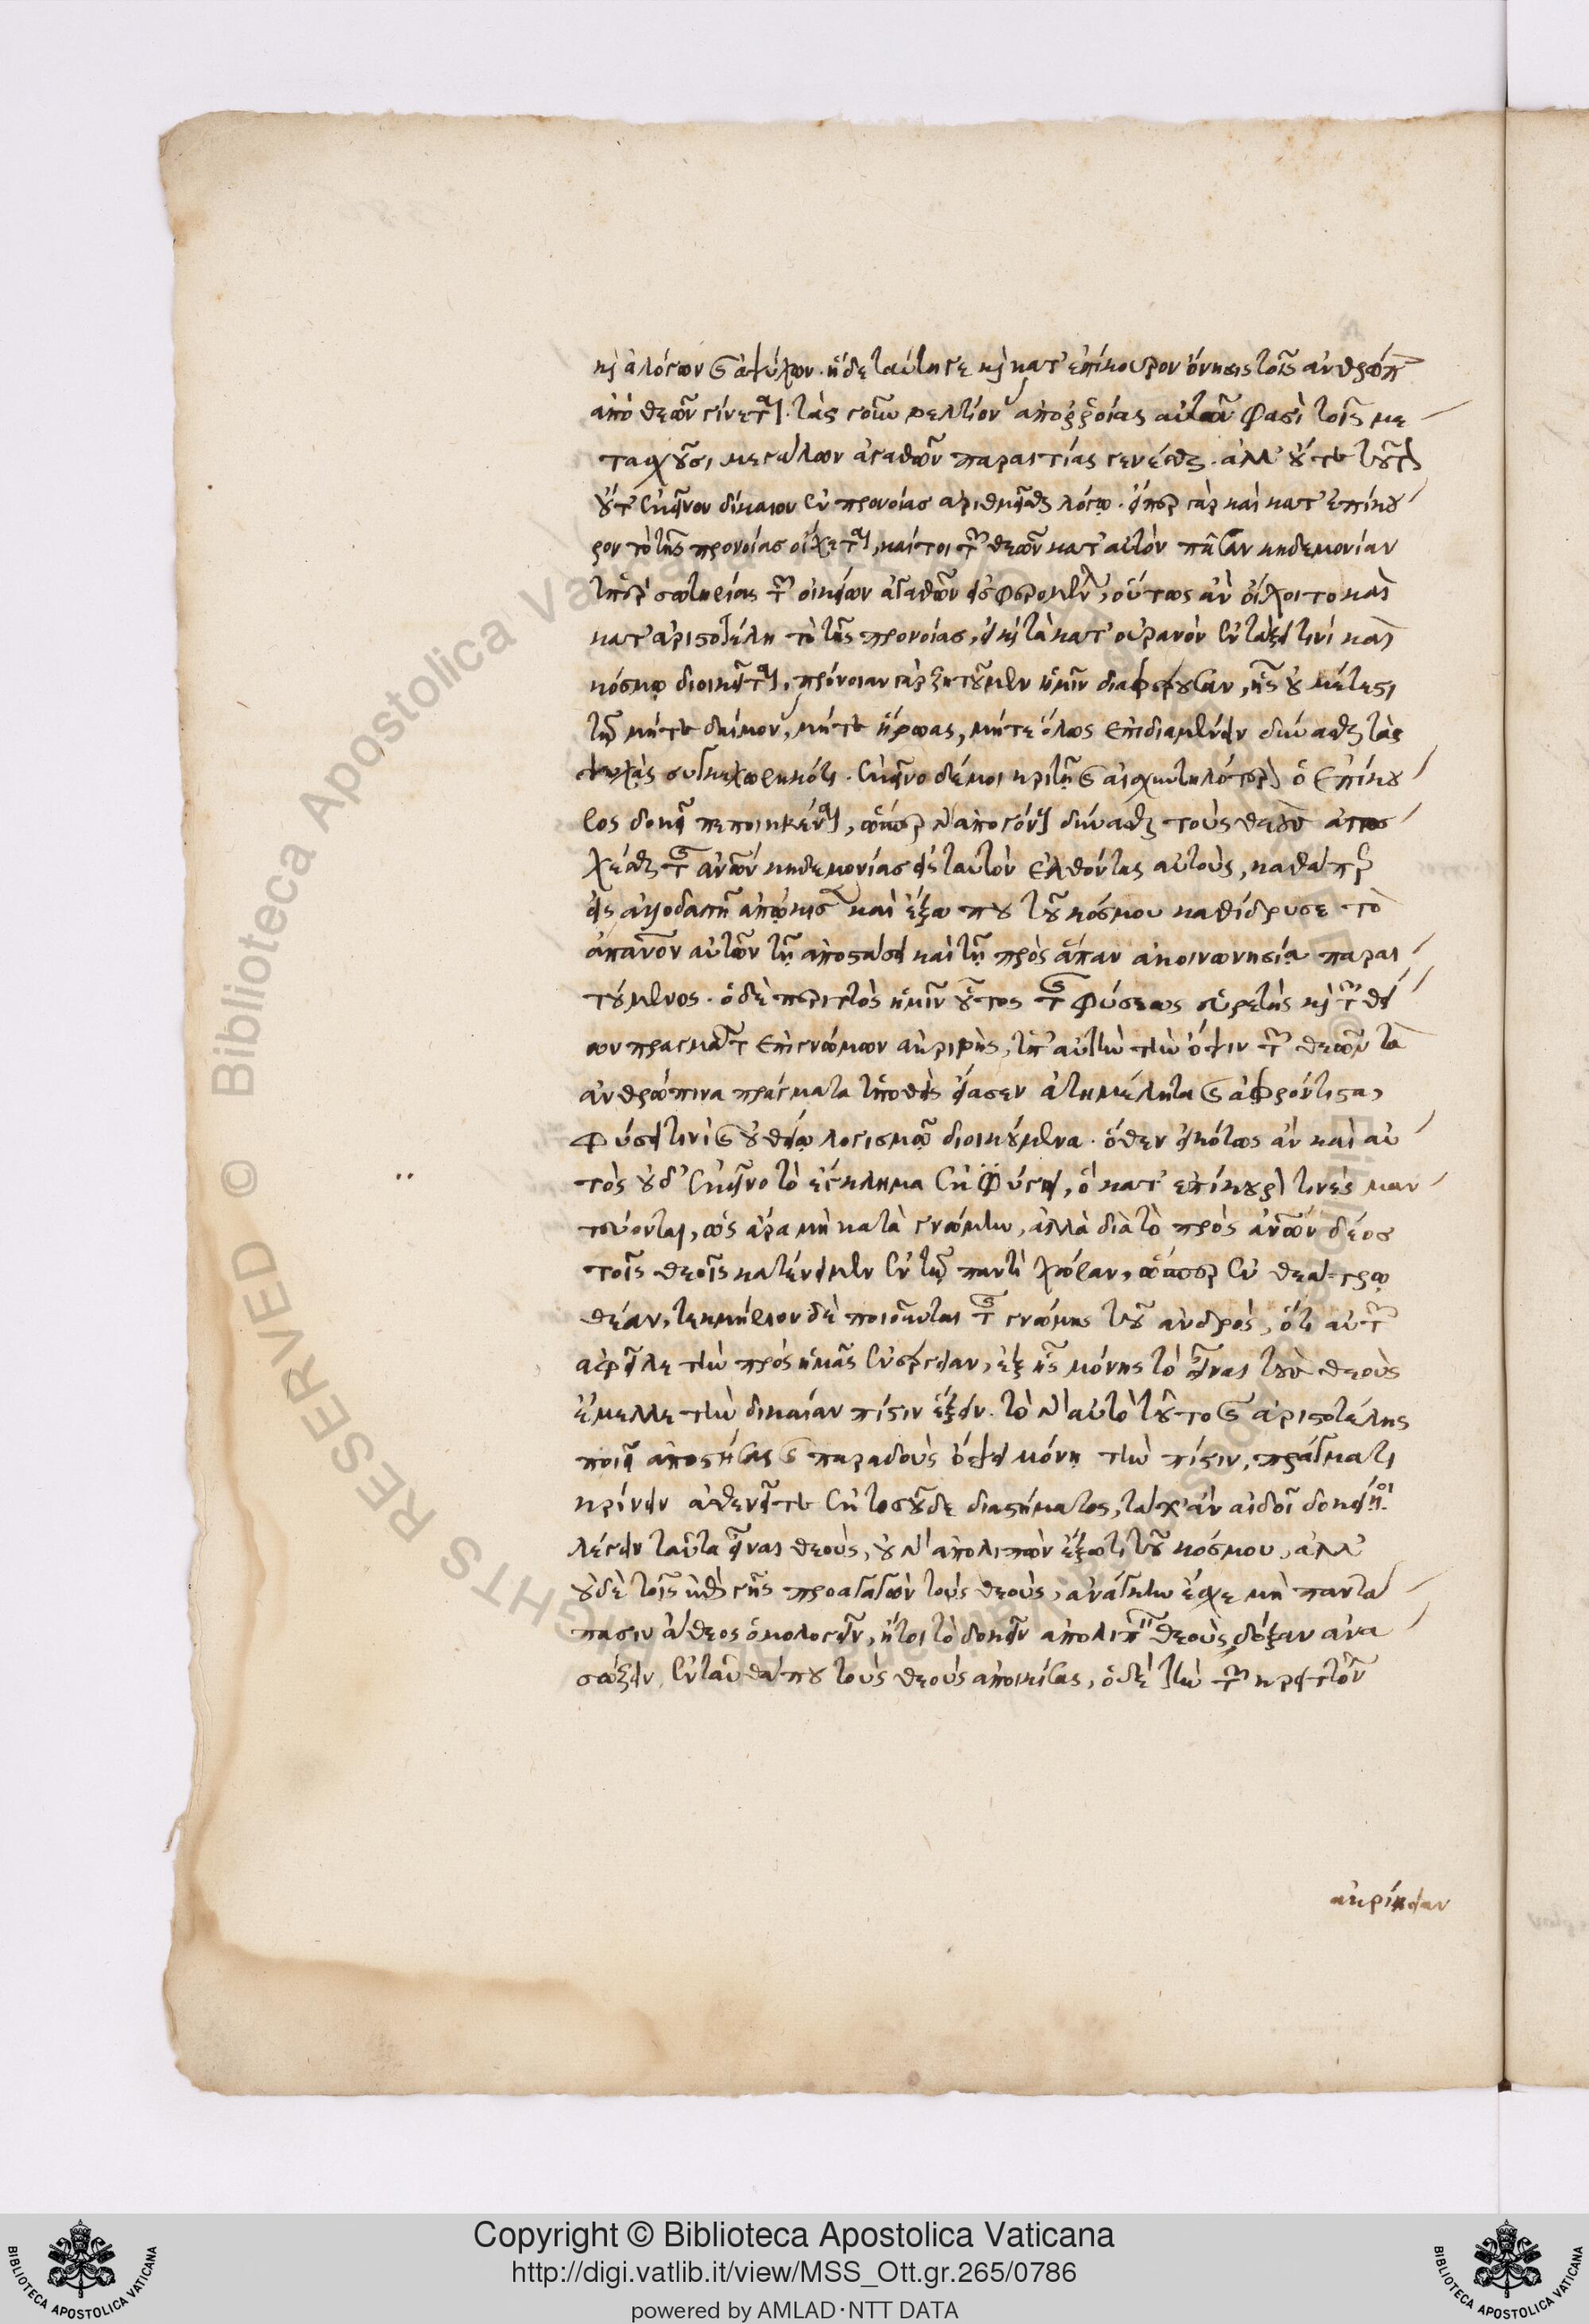 καὶ ἀλόγων καὶ ἀψύχων. ἤδε ταύτη γε καὶ κατ' ἐπίκουρον ὄνησις τοῖς ἀνθρώποις
ἀπὸ θεῶν γίνεται. τὰς γοῦν βελτίονας ἀπορροίας αὐτῶν φασὶ τοῖς με
τασχοῦσι μεγάλων ἀγαθῶν παραιτίας γενέσθαι. ἀλλ' οὔτε τοῦτον
οὔτ' ἐκεῖνον δίκαιον ἐν προνοίας ἀριθμεῖσθαι λόγῳ. εἴπερ γὰρ καὶ κατ' ἐπίκου
ρον τὸ τῆς προνοίας οἴχεται, καίτοι τῶν θεῶν κατ' αὐτὸν πᾶσαν κηδεμονίαν
ὑπὲρ σωτηρίας τῶν οἰκείων ἀγαθῶν εἰσφερομένων, οὕτως ἂν οἴχοιτο καὶ
κατ' ἀριστοτέλη τὸ τῆς προνοίας, εἰ καὶ τὰ κατ' οὐρανὸν ἐν τάξει τινὶ καὶ
κόσμῳ διοικεῖται. πρόνοιαν γὰρ ζητοῦμεν ἡμῖν διαφέρουσαν, ἧς οὐ μέτεστι
τῷ μήτε δαίμονας, μήτε ἥρωας, μήτε ὅλως ἐπιδιαμένειν δύνασθαι τὰς
ψυχὰς συγκεχωρηκότι. ἐκεῖνο δέ μοι κριτῇ καὶ αἰσχυντηλότερον ὁ ἐπίκου
ρος δοκεῖ πεποιηκέναι, ὥσπερ γὰρ ἀπογόνων δύνασθαι τοὺς θεοὺς ἀποσ
χέσθαι τῆς ἀνθρώπων κηδεμονίας εἰς ταὐτὸν ἐλθόντας αὐτοὺς, καθάπερ
εἰς ἀλλοδαπὴν ἀπῴκισε καὶ ἔξω που τοῦ κόσμου καθίδρυσε τὸ
ἀπάνθρωπον αὐτῶν τῇ ἀποστάσει καὶ τῇ πρὸς ἅπαν ἀκοινωνησίᾳ παραι
τούμενος. ὁ δὲ περιττὸς ἡμῖν οὗτος τῆς φύσεως εὑρετὴς καὶ τῶν θεί
ων πραγμάτων ἐπιγνώμων ἀκριβὴς, ὑπ' αὐτὴν τὴν ὄψιν τῶν θεῶν τὰ
ἀνθρώπινα πράγματα ὑποθεὶς εἴασεν ἀτημέλητα καὶ ἀφρόντιστα,
φύσει τινὶ καὶ οὐ θεῷ λογισμῷ διοικούμενα. ὅθεν εἰκότως ἂν καὶ αὐ
τὸς οὐδ' ἐκεῖνο τὸ ἔγκλημα ἐκφύγοι, ὃ κατ' ἐπικούρου τινὲς μαν
τεύονται, ὡς ἄρα μὴ κατὰ γνώμην, ἀλλὰ διὰ τὸ πρὸς ἀνθρώπων δέος
τοῖς θεοῖς κατένειμεν ἐν τῷ παντὶ χώραν, ὥσπερ ἐν θεάτρῳ
θέαν, τεκμήριον δὲ ποιοῦνται τῆς γνώμης τοῦ ἀνδρὸς, ὅτι αὐτῶν
ἀφεῖλε τὴν πρὸς ἡμᾶς ἐνέργειαν, ἐξ ἧς μόνης τὸ εἶναι τοὺς θεοὺς
ἔμελλε τὴν δικαίαν πίστιν ἕξειν. τὸ γὰρ αὐτὸ τοῦτο καὶ ἀριστοτέλης
ποιεῖ ἀποστήσας καὶ παραδοὺς ὄψει μόνῃ τὴν πίστιν, πράγματι
κρίνειν ἀσθενεῖ τε ἐκ τοσοῦδε διαστήματος, τάχ' ἂν αἰδοῖ δοκοίη
λέγειν ταῦτα εἶναι θεοὺς, οὐ γὰρ ἀπολιπὼν ἔξω τι τοῦ κόσμου, ἀλλ'
οὐδὲ τοῖς ἐπὶ γῆς προσαγαγὼν τοὺς θεοὺς, ἀνάγκην ἔσχε μὴ παντά
πασιν ἄθεος ὁμολογεῖν, ἤτοι τὸ δοκεῖν ἀπολιπεῖν θεοὺς δόξαν ἀνα
σώζειν, ἐνταῦθά που τοὺς θεοὺς ἀποικίσας, ὁ δὲ τὴν τῶν κρειττόνων
ἀκρίβειαν
Copyright © Biblioteca Apostolica Vaticana
http://digi.vatlib.it/view/MSS_Ott.gr.265/0786
powered by AMLAD·NTT DATA